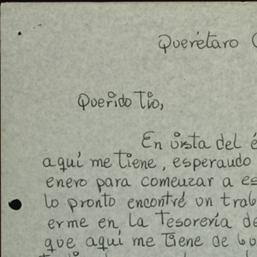 Querétaro (
Querido Tío,
En vista del é
aquí me tiene, esperando
enero para comenzar a es
lo pronto encontré un trab
erme en la Tesorería de
que aquí me tiene de